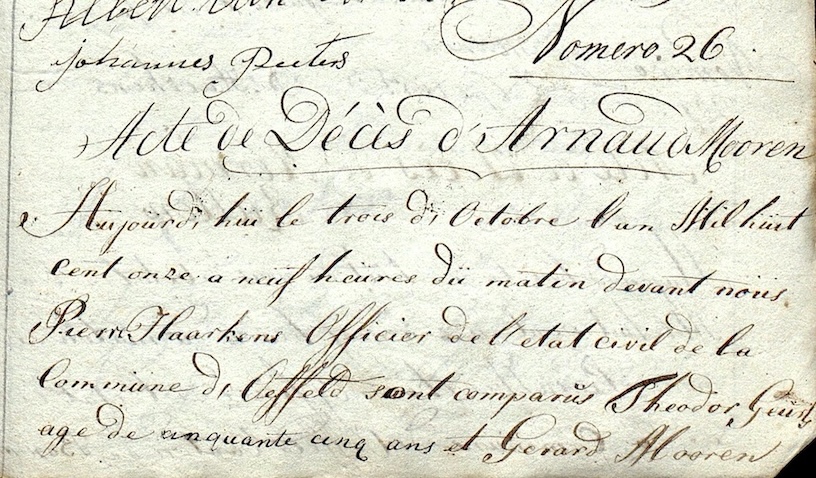 Johannes Peeters
Nomero. 26
Acte de Décès d'Arnaud Mooren
Aujourd'hui le trois d'Octobre l'an Mil huit
cent onze a neuf heures du matin devant nous
Pierre Haarkens Officier de l'etat civil de la
Commune d'Oeffeld sont comparus Theodor Geurts
age de cinquante cinq ans et Gerard Mooren